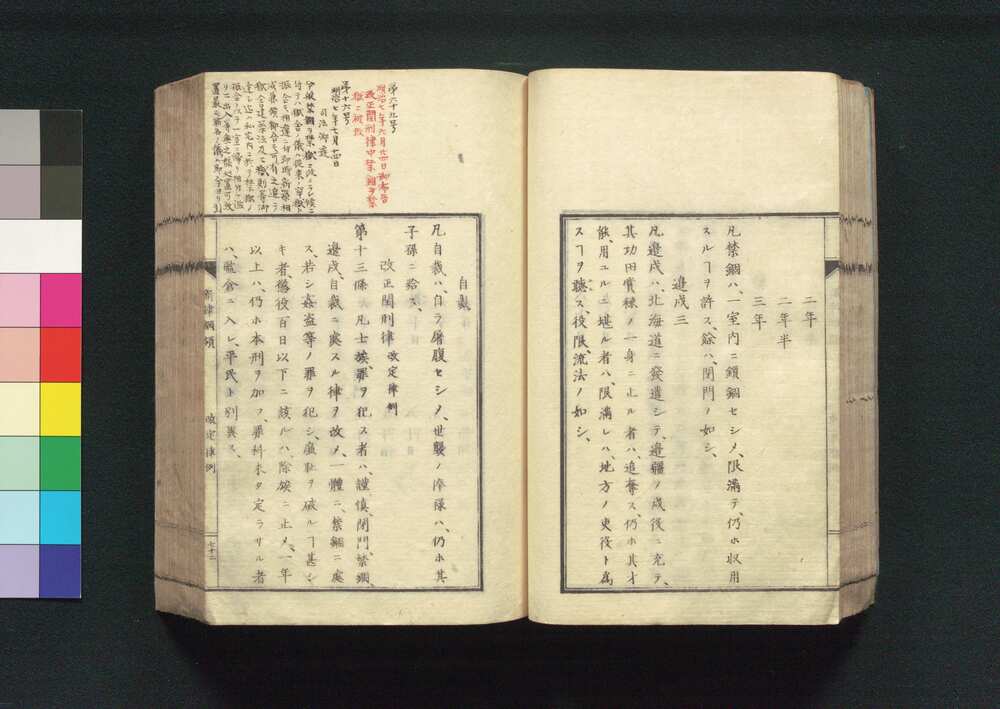 二年
二年半
三年
凡禁錮ハ、一室内ニ鎖錮セシメ、限滿テ、仍ホ収用
スルヿヲ許ス、餘ハ、閉門ノ如シ、
邉戍三
凡邉戍ハ、北海道ニ發遣シテ、邉疆ノ戍役ニ充テ、
其功田賞祿ノ一身ニ止ル者ハ、追奪ス、仍ホ其才
能、用ユルニ堪ル者ハ、限滿レハ、地方ノ吏役ト爲
スヿヲ聴ス、役限、流法ノ如シ、
第六十九号
明治七年六月廿四日御布告
改正閏刑律中禁錮ヲ禁
獄ニ被改
第十六号
明治七年七月十四日
司法御達
自裁
凡自裁ハ、自ラ屠腹セシメ、世襲ノ卒隊ハ、仍ホ其
子孫ニ給ス、
改正閏刑律 改定律例
第十三條 凡士族、罪ヲ犯ス者ハ、謹慎、閉門、禁錮、
邉戍、自裁ニ處スル律ヲ改メ、一體ニ、禁錮ニ處
ス、若シ姦盗等ノ罪ヲ犯シ、廉耻ヲ破ルヿ甚シ
キ者、懲役百日以下ニ該ルハ、除族ニ止メ、一年
以上ハ、仍ホ本刑ヲ加フ、罪科未タ定ラサル者
ハ、監倉ニ入レ、平民ト別異ス、
新律綱領 改定律例 七十二